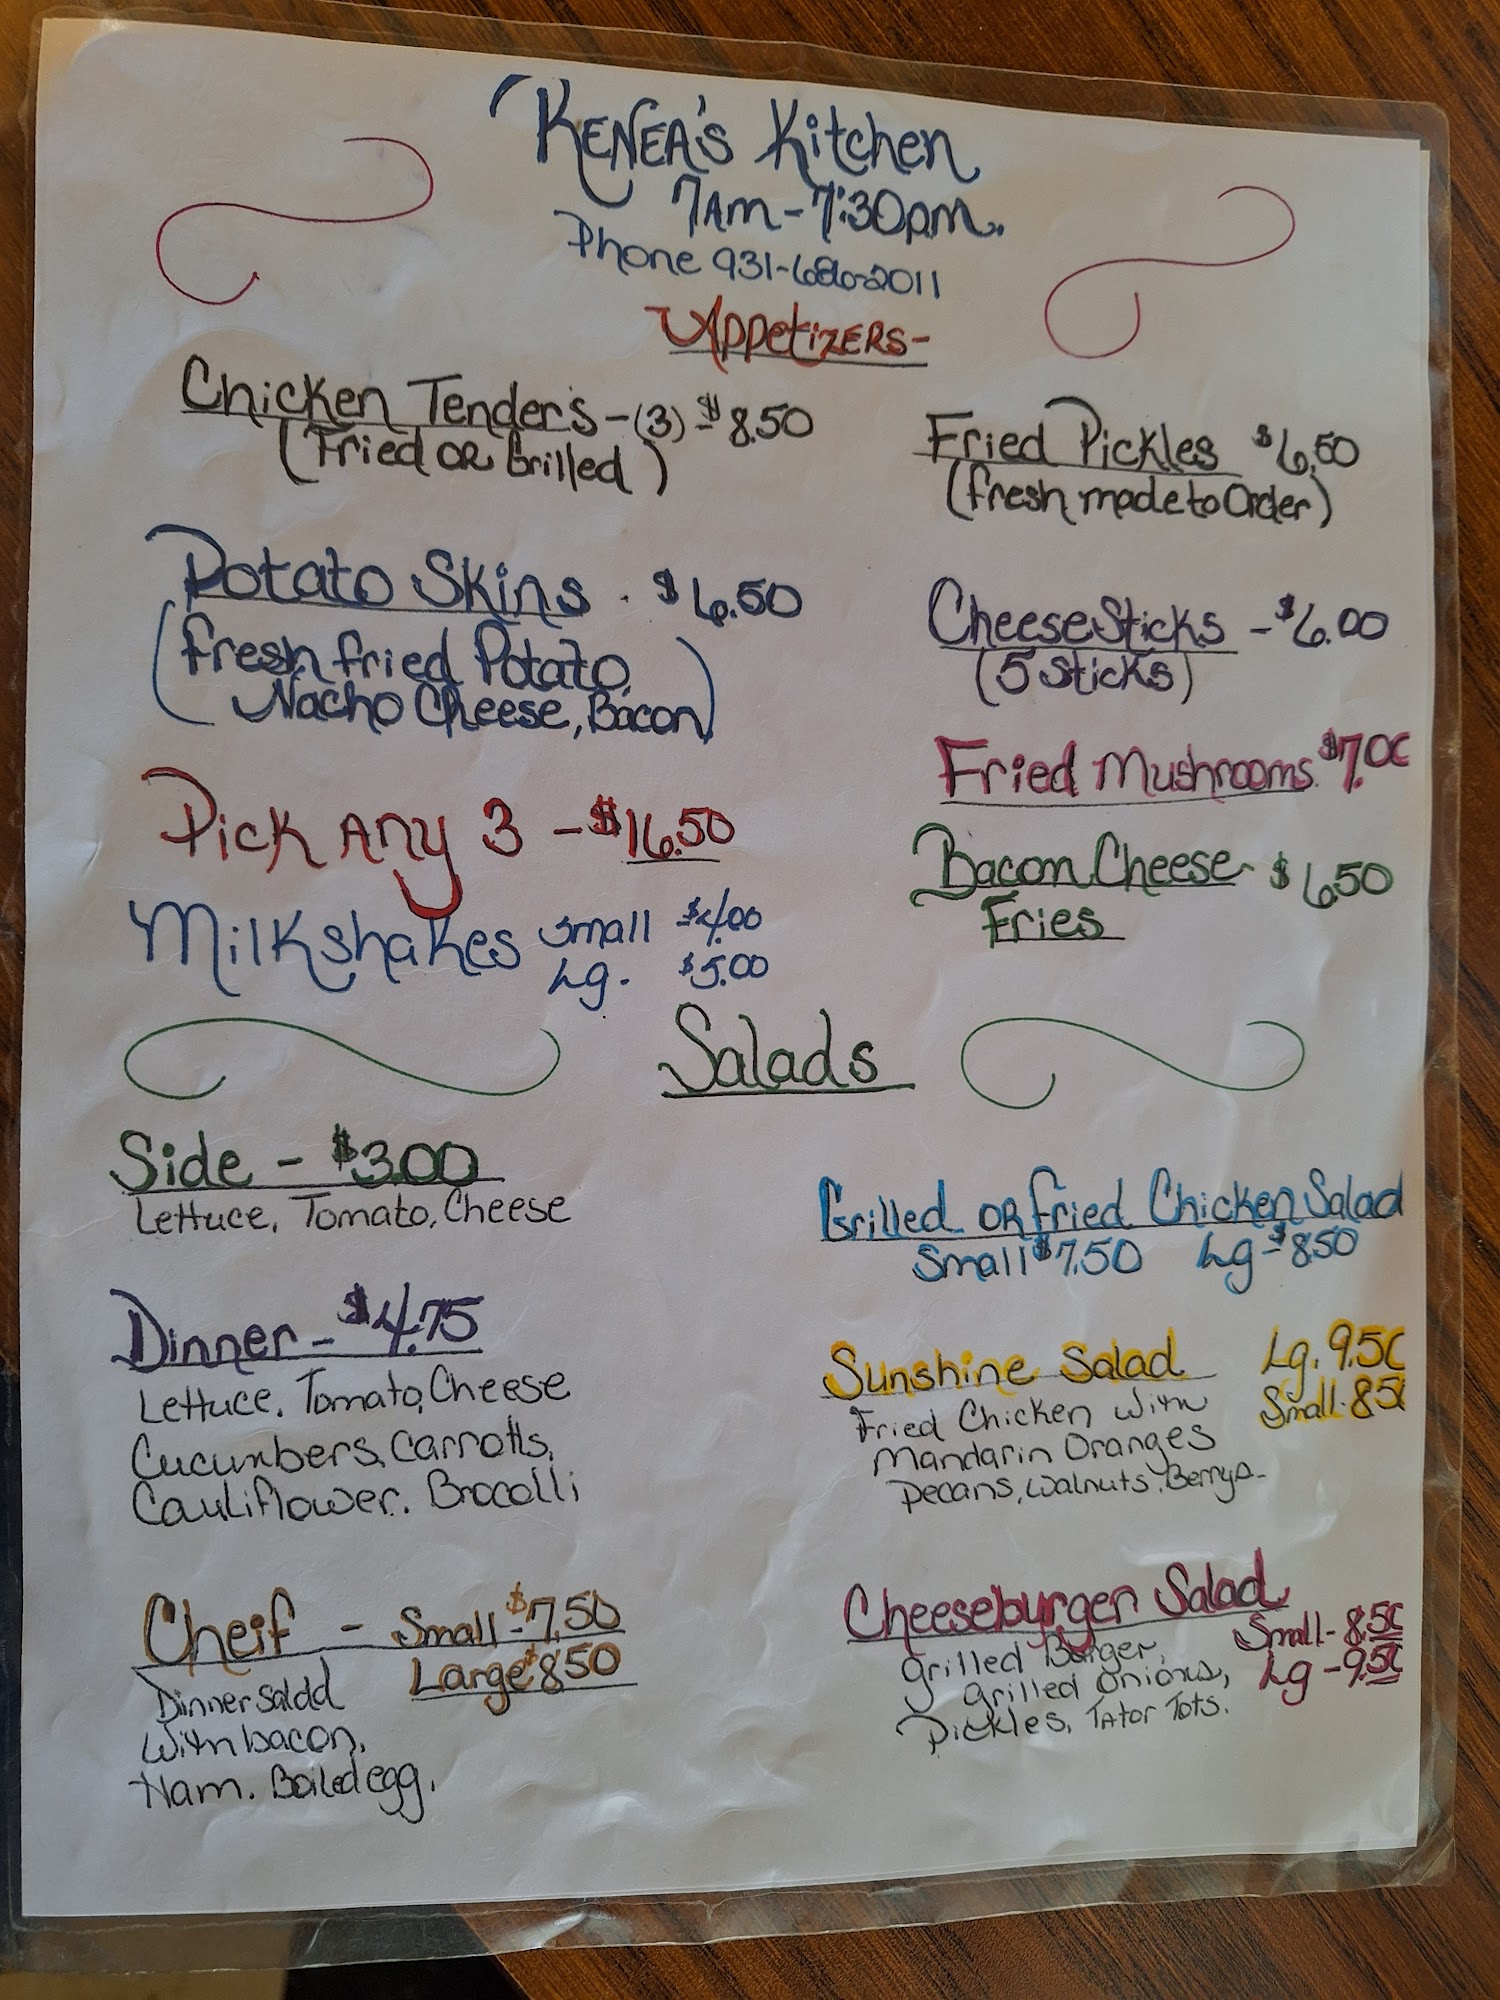 Kenea's Kitchen
7am-7:30pm.
Phone 931-686-2011
Appetizers-
Chicken Tenders-(3)-$8.50
(Fried or Grilled)
Potato Skins . $6.50
(Fresh fried Potato,
Nacho Cheese, Bacon)
Pick Any 3 - $16.50
Milkshakes small $4.00
Lg. $5.00
Fried Pickles $6.50
(fresh made to Order)
Cheese Sticks - $6.00
(5 Sticks)
Fried Mushrooms $7.00
Bacon Cheese $6.50
Fries
Salads
Side - $3.00
Lettuce, Tomato, Cheese
Dinner - $4.75
Lettuce, Tomato, Cheese
Cucumbers, Carrotts,
Cauliflower. Brocolli
Cheif - Small-$7.50
Large $8.50
Dinner saldd
With bacon,
Ham. Boiled egg.
Grilled or fried Chicken Salad
Small $7.50 Lg-$8.50
Sunshine Salad Lg. 9.50
Small-8.50
Fried Chicken with
Mandarin Oranges
Pecans, Walnuts, Berrys-
Cheeseburger Salad
Small-8.50
Lg-9.50
Grilled Burger,
Grilled Onions,
Pickles, Tator Tots.